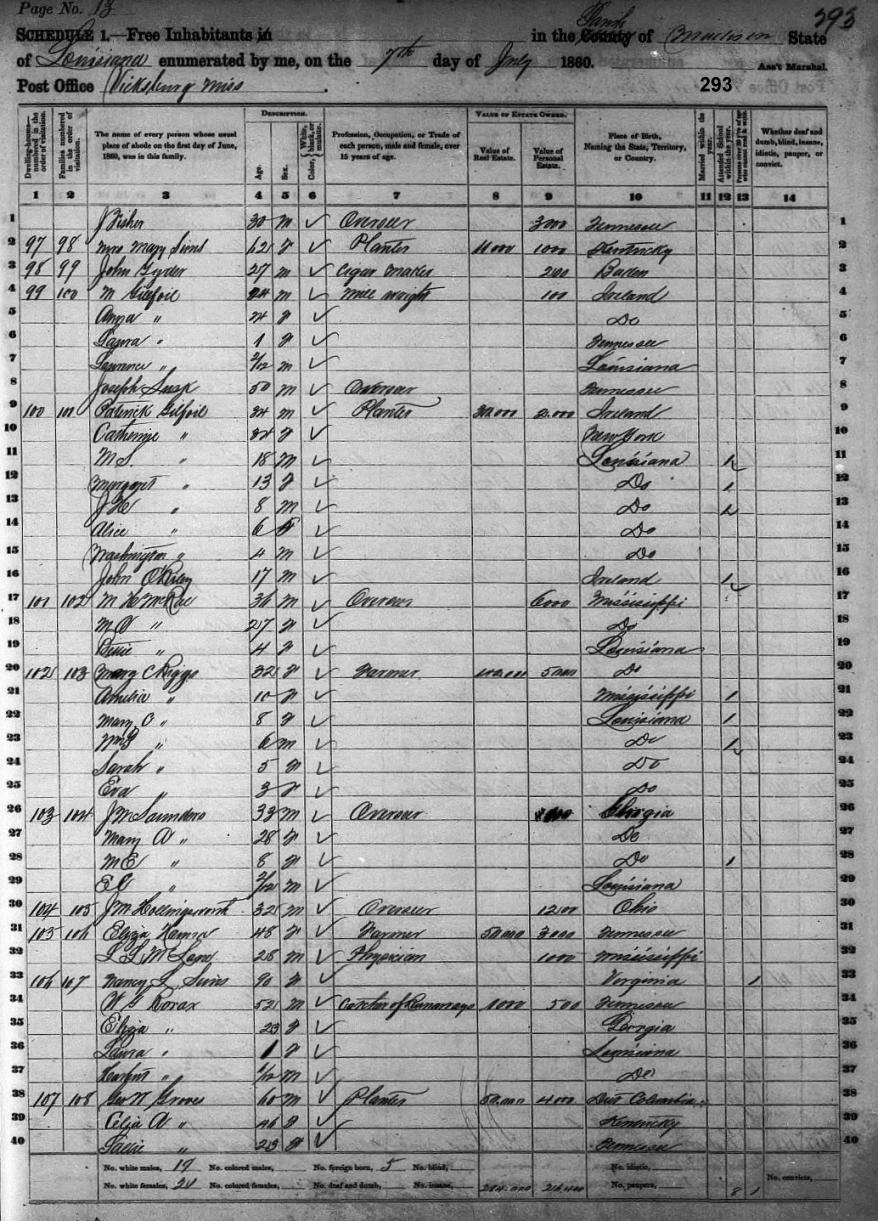 Page No. 13
293
SCHEDULE 1.—Free Inhabitants in in the Parish County of Madison State
of Louisiana enumerated by me, on the 7th day of July 1860. Ass't Marshal.
Post Office Vicksburg Miss 293
Dwelling-house—numbered in the order of visitation.
Families numbered in the order of visitation.
The name of every person whose usual place of abode on the first day of June, 1860, was in this family.
DESCRIPTION.
Age.
Sex.
Color, White, black, or mulatto.
Profession, Occupation, or Trade of each person, male and female, over 15 years of age.
VALUE OF ESTATE OWNED.
Value of Real Estate.
Value of Personal Estate.
Place of Birth, Naming the State, Territory, or Country.
Married within the year.
Attended School within the year.
Whether deaf and dumb, blind, insane, idiotic, pauper, or convict.
1 2 3 4 5 6 7 8 9 10 11 12 13 14
1 J Fisher 30 m ✓ Overseer 3000 Tennessee 1
2 97 98 Mrs Mary Sims 62 f ✓ Planter 1000 Kentucky 2
3 98 99 John 27 m ✓ Cigar maker 200 Baden 3
4 99 100 M Gilfoil 24 m ✓ Mill wright 100 Ireland 4
5 Anna " 24 f ✓ Do 5
6 Laura " 1 f ✓ Tennessee 6
7 Lawrence " 2/12 m ✓ Louisiana 7
8 Joseph 50 m ✓ Overseer Tennessee 8
9 100 101 Patrick Gilfoil 34 m ✓ Planter 2.000 Ireland 9
10 Catherine " 34 f ✓ New York 10
11 M S. " 18 m ✓ Louisiana 1 11
12 Margaret " 13 f ✓ Do 1 12
13 J H " 8 m ✓ Do 1 13
14 Alice " 6 f ✓ Do 14
15 Washington " 4 m ✓ Do 15
16 John 17 m ✓ Ireland 1 16
17 101 102 M H McRae 36 m ✓ Overseer 6000 Mississippi 17
18 M " 27 f ✓ Do 18
19 4 f ✓ Louisiana 19
20 102 103 Mary C Riggs 32 f ✓ Farmer Do 20
21 Amelia " 10 f ✓ Mississippi 1 21
22 Mary C " 8 f ✓ Louisiana 1 22
23 Wm " 6 m ✓ Do 1 23
24 Sarah " 5 f ✓ Do 24
25 Eva " 3 f ✓ Do 25
26 103 104 J M Saunders 33 m ✓ Overseer Georgia 26
27 Mary A " 28 f ✓ Do 27
28 M E " 8 f ✓ Do 1 28
29 E C " 2/12 m ✓ Louisiana 29
30 104 105 J M Hollingsworth 32 m ✓ Overseer 1200 Ohio 30
31 105 106 Eliza 48 f ✓ Farmer 50.000 3000 Tennessee 31
32 McLane 28 m ✓ Physician 1000 Mississippi 32
33 106 107 Nancy L Sims 90 f ✓ Virginia 1 33
34 W Lorax 52 m ✓ Catcher of Runaways 1000 500 Tennessee 34
35 Eliza " 23 f ✓ Georgia 35
36 Laura " 1 f ✓ Louisiana 36
37 m ✓ Do 37
38 107 108 Geo W Groves 60 m ✓ Planter 50.000 4000 Dist Columbia 38
39 Celia A " 46 f ✓ Kentucky 39
40 Sallie " 23 f ✓ Tennessee 40
No. white males, 19 No. colored males, No. foreign born, 5 No. blind, No. idiotic,
No. white females, 21 No. colored females, No. deaf and dumb, No. insane, No. paupers, 8 1 No. convicts,